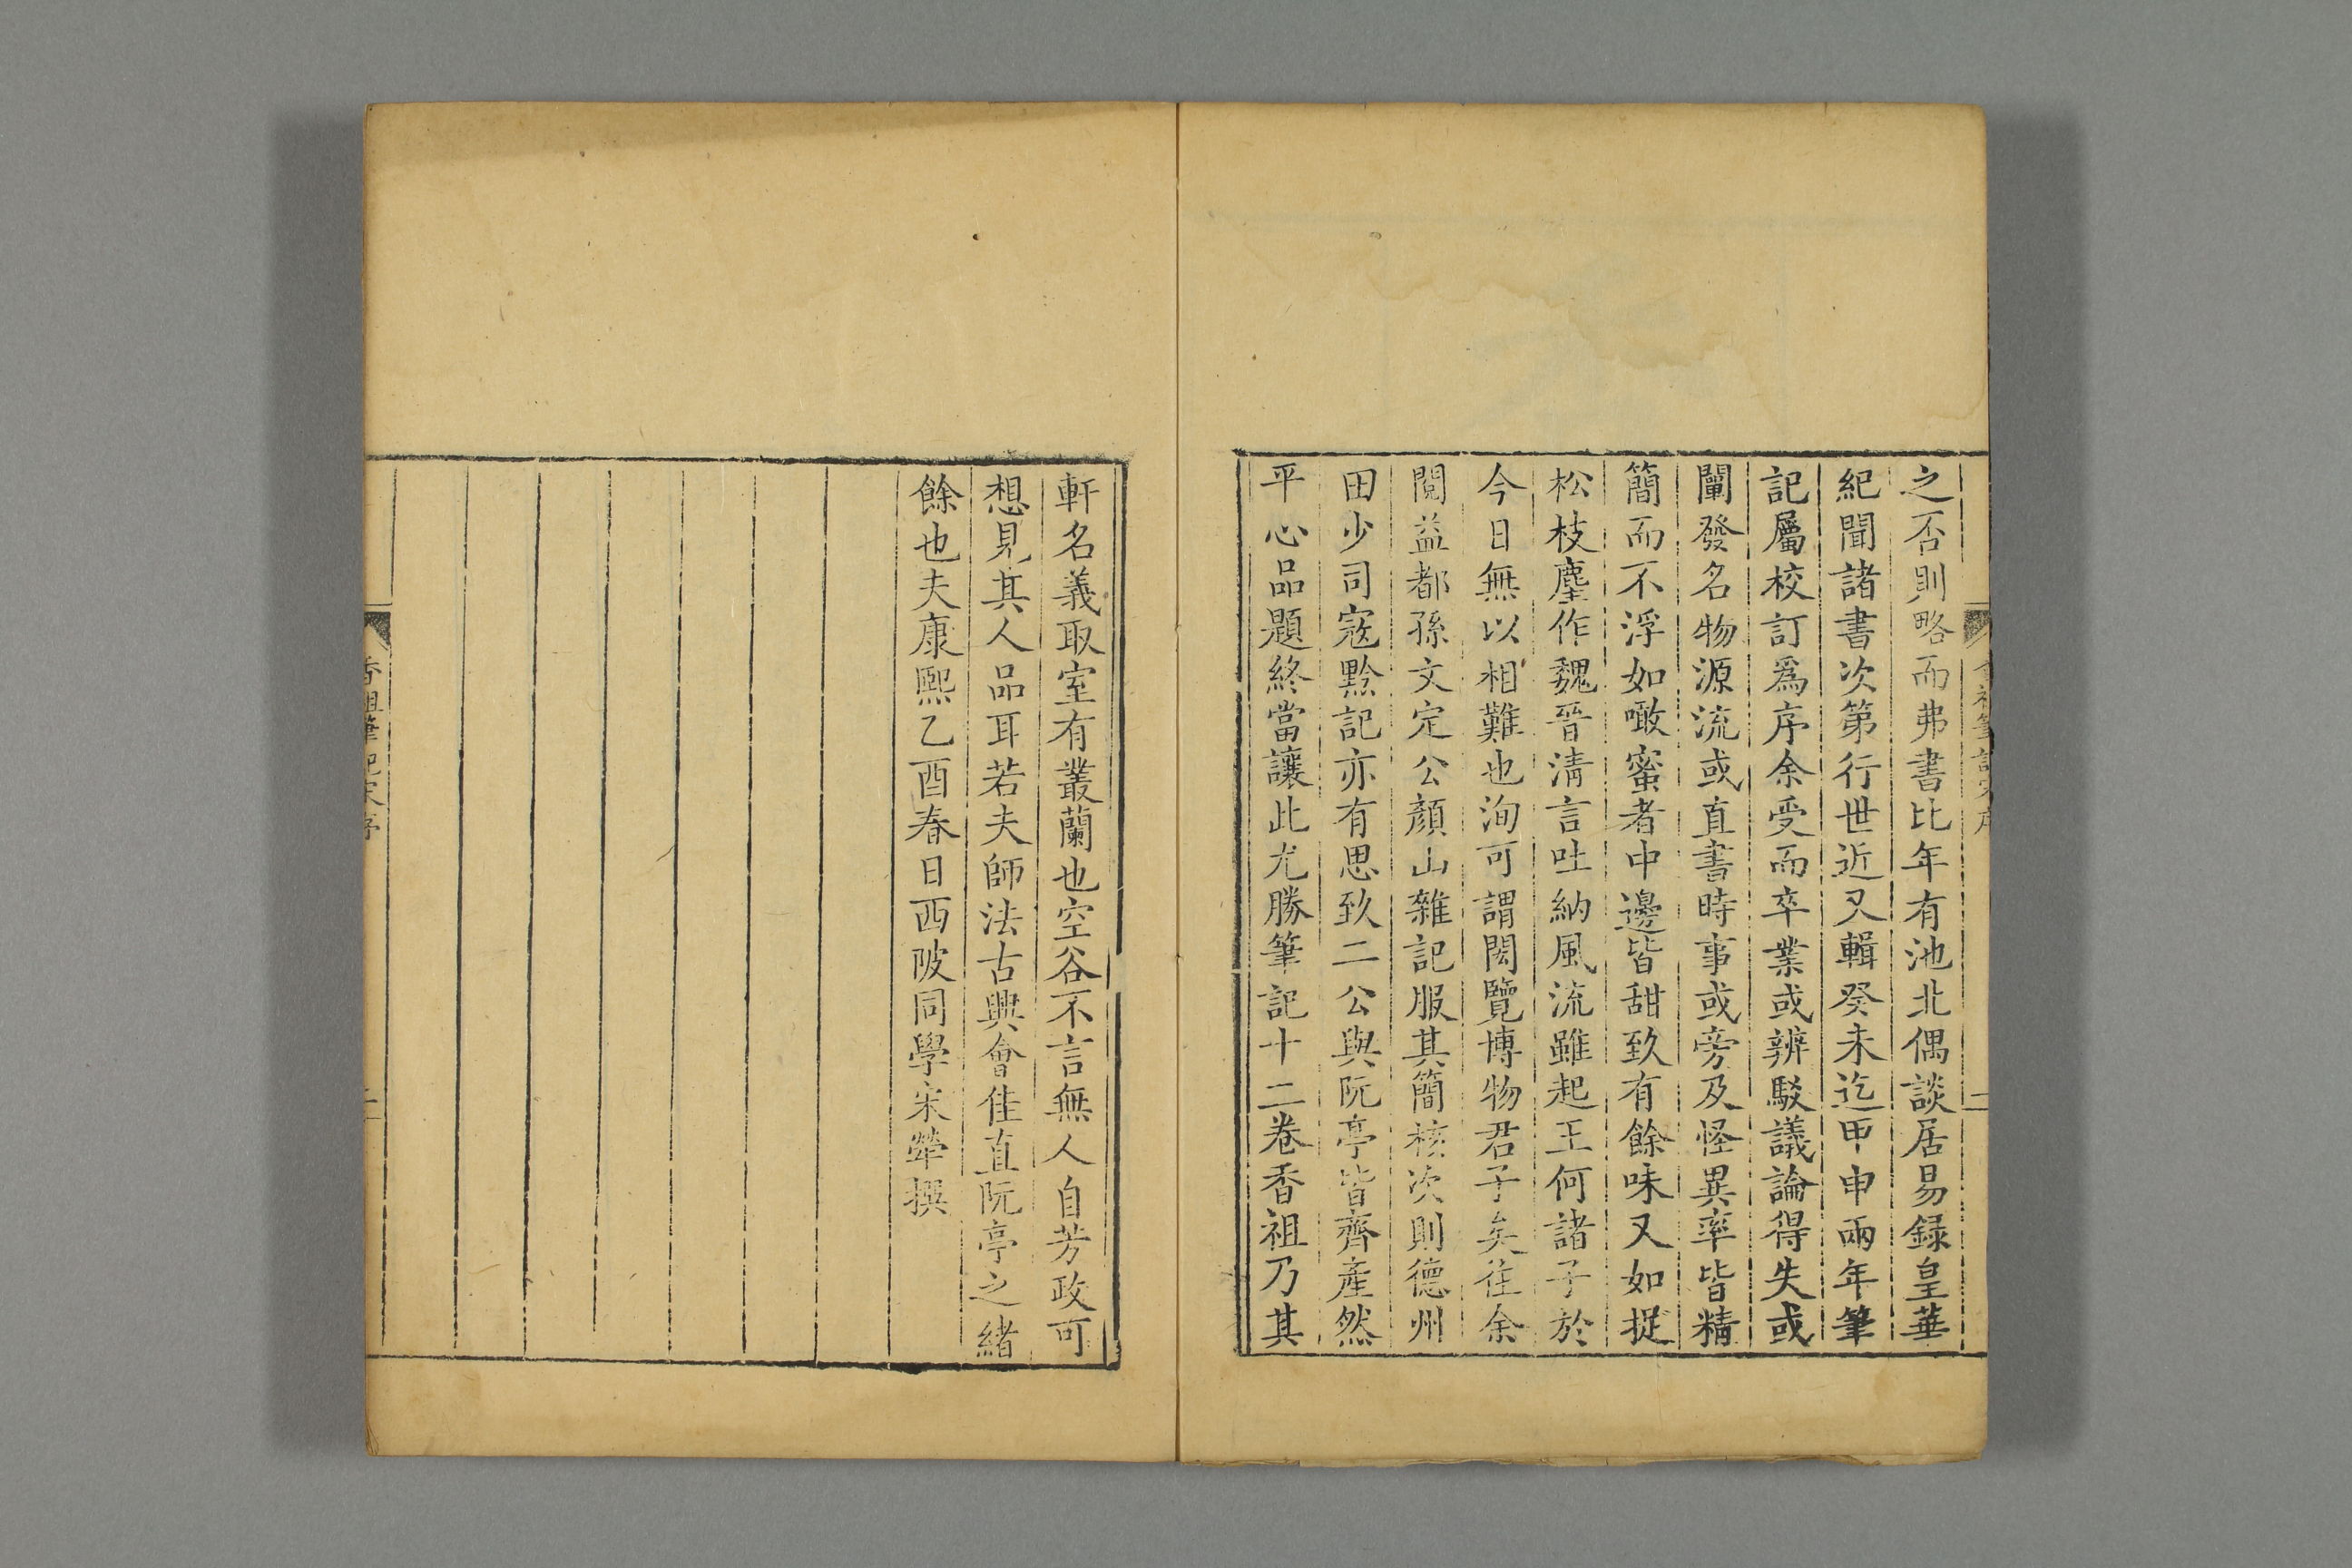 之否則略而弗書比年有池北偶談居易録皇華
紀聞諸書次第行世近又輯癸未迄甲申兩年筆
記屬校訂爲序余受而卒業或辨駁議論得失或
闡發名物源流或直書時事或旁及怪異率皆精
簡而不浮如噉蜜者中邊皆甜致有餘味又如捉
松枝麈作魏晉清言吐納風流雖起王何諸子於
今日無以相難也洵可謂閎覽博物君子矣往余
閱益都孫文定公顏山雜記服其簡核次則德州
田少司寇黔記亦有思致二公與阮亭皆齊產然
平心品題終當讓此尤勝筆記十二卷香祖乃其
軒名義取室有叢蘭也空谷不言無人自芳政可
想見其人品耳若夫師法古興會佳直阮亭之緒
餘也夫康熙乙酉春日西陂同學宋犖撰
香祖筆記宋序
二